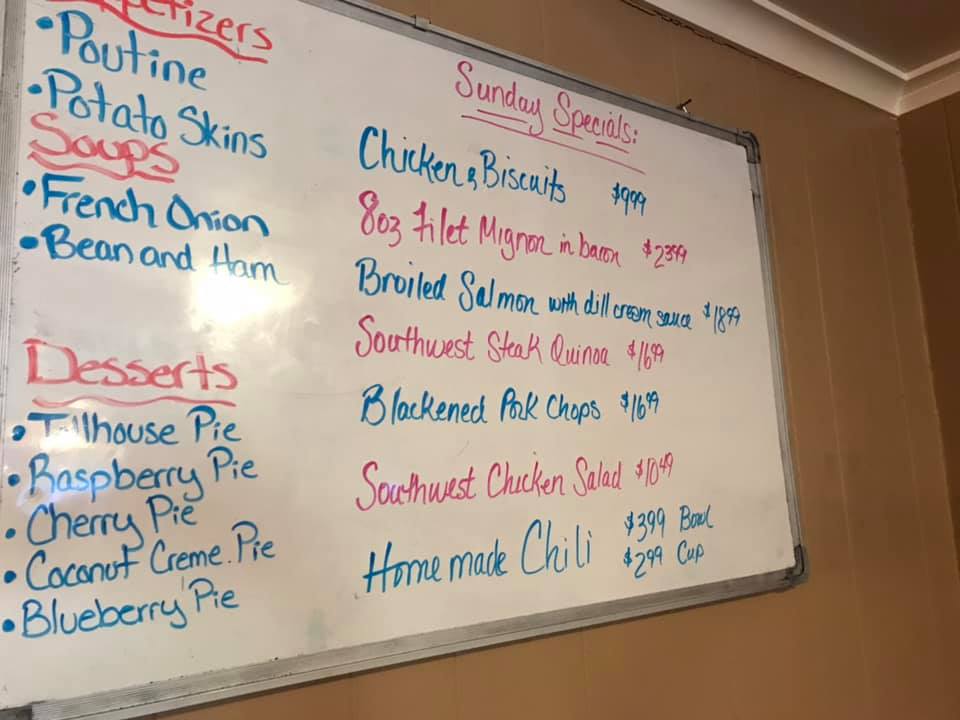 Appetizers
• Poutine
• Potato Skins
Soups
• French Onion
• Bean and Ham
Desserts
• Tollhouse Pie
• Raspberry Pie
• Cherry Pie
• Coconut Creme Pie
• Blueberry Pie
Sunday Specials:
Chicken & Biscuits $9.99
8oz Filet Mignon in bacon $23.99
Broiled Salmon with dill cream sauce $18.99
Southwest Steak Quinoa $16.99
Blackened Pork Chops $16.99
Southwest Chicken Salad $10.49
Homemade Chili $3.99 Bowl
$2.99 Cup